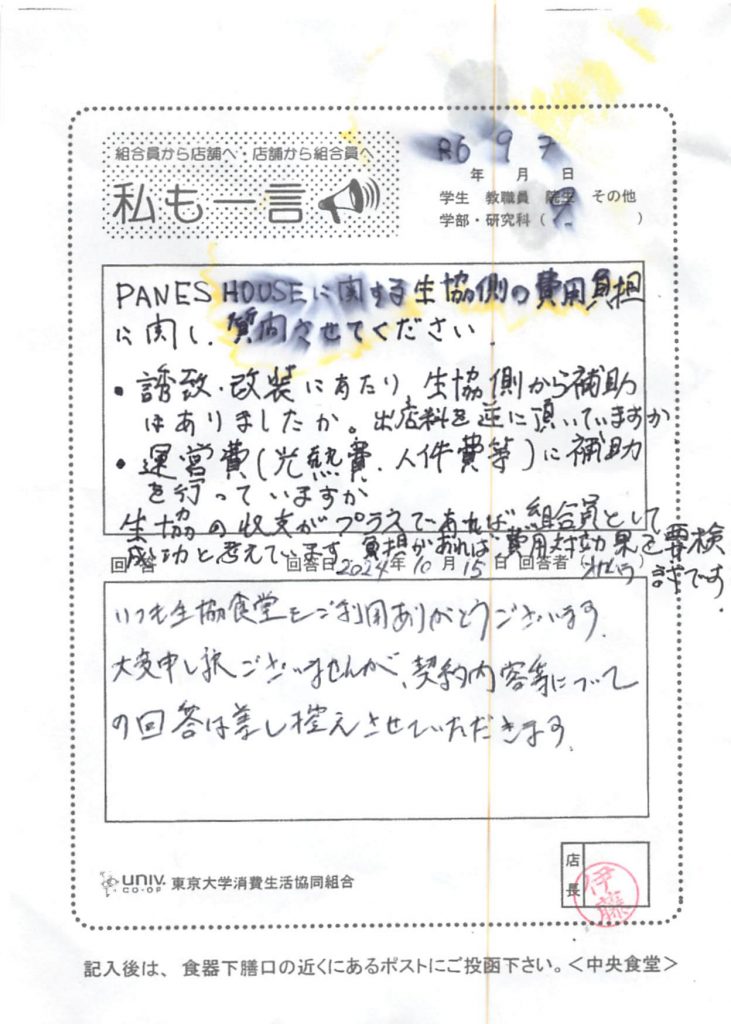 組合員から店舗へ・店舗から組合員へ
私も一言
R6 9 7
年 月 日
学生 教職員 院生 その他
学部・研究科( )
PANES HOUSEに関する生協側の費用負担
に関し、質問させてください.
・誘致・改装にあたり 生協側から補助
はありましたか。出店料を逆に頂いていますか
・運営費(光熱費、人件費等)に補助
を行っていますか
生協の収支がプラスであれば 組合員として
成功と考えています。負担があれば、費用対効果を要検
討です.
回答 回答日 2024年 10月 15日 回答者( )
いつも生協食堂をご利用ありがとうございます.
大変申し訳ございませんが、契約内容等について
の回答は差し控えさせていただきます.
UNIV. CO-OP 東京大学消費生活協同組合
店長
伊藤
記入後は、食器下膳口の近くにあるポストにご投函下さい。<中央食堂>